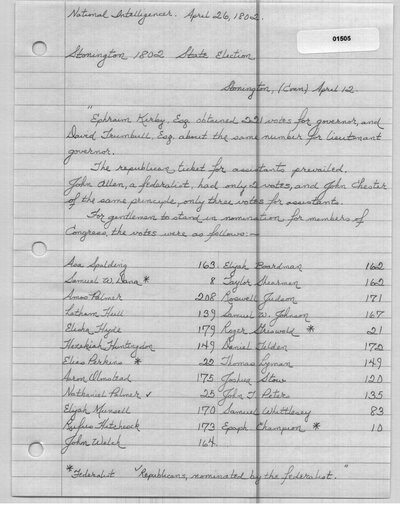 National Intelligencer. April 26, 1802.
01505
Stonington, 1802 State Election
Stonington, (Conn) April 12
"Ephraim Kirby, Esq obtained 221 votes for governor, and
David Trumbull, Esq. about the same number for lieutenant
governor.
The republican ticket for assistants prevailed.
John Allen, a federalist, had only 2 votes, and John Chester
of the same principle, only three votes for assistants.
For gentlemen to stand in nomination for members of
Congress, the votes were as follows:~
Asa Spalding 163 Elijah Boardman 162
Samuel W. Dana * 8 Taylor Shearman 162
Amos Palmer 208 Roswell Judson 171
Latham Hull 139 Samuel W. Johnson 167
Elisha Hyde 179 Roger Griswold * 21
Hezekiah Huntington 149 Daniel Tilden 172
Elias Perkins * 22 Thomas Lyman 149
Aaron Olmstead 175 Joshua Stow 120
Nathaniel Palmer ✓ 25 John T. Peters 135
Elijah Munsell 170 Samuel Whittlesey 83
Rufus Hitchcock 173 Epaph Champion * 10
John Welch 164
*Federalist ✓Republicans, nominated by the federalist."